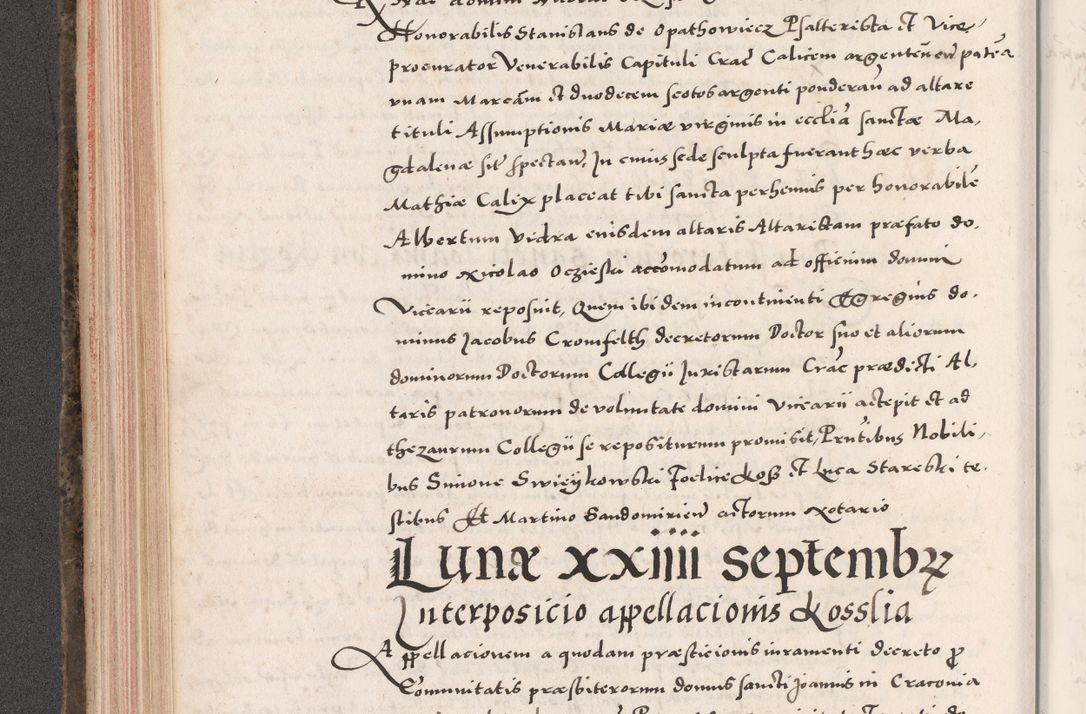 Honorabilis Stanislaus de Opathowiecz Psalterista et Vice
procurator Venerabilis Capituli Crac̃ Calicem argenteũ cũ patẽa
vnam Marcam et duodecem scotos argenti ponderañ ad altare
tituli Assumptionis Mariæ virginis in ecclĩa sanctæ Ma,
gdalenæ sit̃ spectañ, In cuius sede sculpta fuerant hæc verba
Mathiæ Calix placeat tibi sancta perhennis per honorabilẽ
Albertum Vidra eiusdem altaris Altaristam præfato do,
mino Nicolao Oczieski accõmodatum ad officium domini
Vicearii reposuit, Quem ibidem incontinenti Egregius do,
minus Jacobus Cromfelth decretorum Doctor suo et aliorum
dominorum Doctorum Collegii Juristarum Crac̃ prædicti Al,
taris patronorum de voluntate domini Vicearii accepit et ad
thezaurum Collegii se repositurum promisit, Prñtibus Nobili,
bus Simone Swieykowski Foelice Koss et Luca Stareski te,
stibus Et Martino Sandomirień actorum Notario
Lunæ xxiiii septembꝝ
Interposicio appellacionis Kosslia
Appellacionem a quodam præsticionis iuramenti decreto ꝓ
Comunitatis præsbiterorum domus sancti Joannis in Cracouia